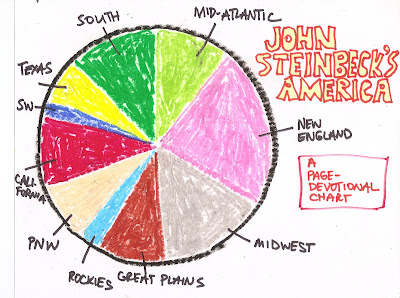 JOHN
STEINBECK'S
AMERICA
SOUTH
MID-ATLANTIC
TEXAS
SW
NEW
ENGLAND
CALI-
FORNIA
A
PAGE-
DEVOTIONAL
CHART
PNW
MIDWEST
ROCKIES
GREAT PLAINS